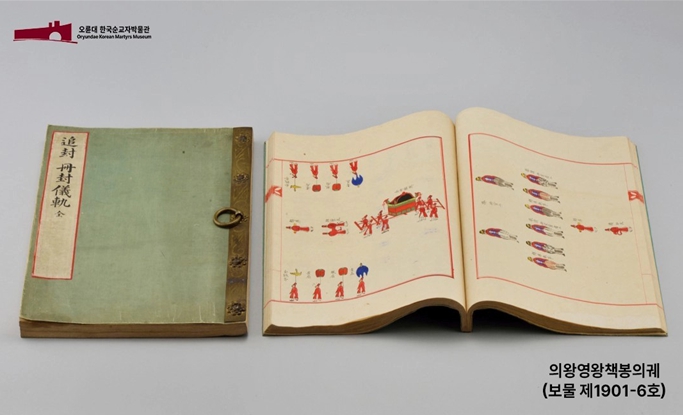 오륜대 한국순교자박물관
Oryundae Korean Martyrs Museum
追封 冊封儀軌 全
의왕영왕책봉의궤
(보물 제1901-6호)